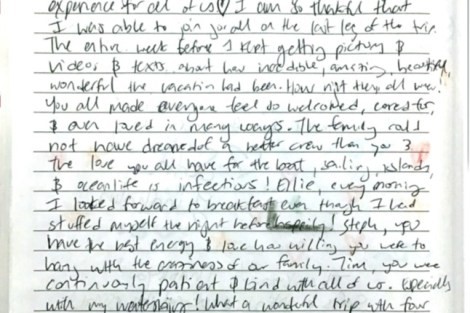 experience for all of us I am so thankful that
I was able to join you all on the last leg of the trip.
The entire week before I kept getting pictures &
videos & texts about how incredible, amazing, beautiful,
wonderful the vacation had been. How right they all were!
You all made everyone feel so welcomed, cared for,
& even loved in many ways. The family could
not have dreamed of a better crew than you 3.
The love you all have for the boat, sailing, islands,
& ocean life is infectious! Ellie, every morning
I looked forward to breakfast even though I had
stuffed myself the night before happily! Steph, you
have the best energy & love how willing you were to
hang with the craziness of our family. Tim, you were
continuously patient & kind with all of us. Especially
with my waterskiing! What a wonderful trip with four